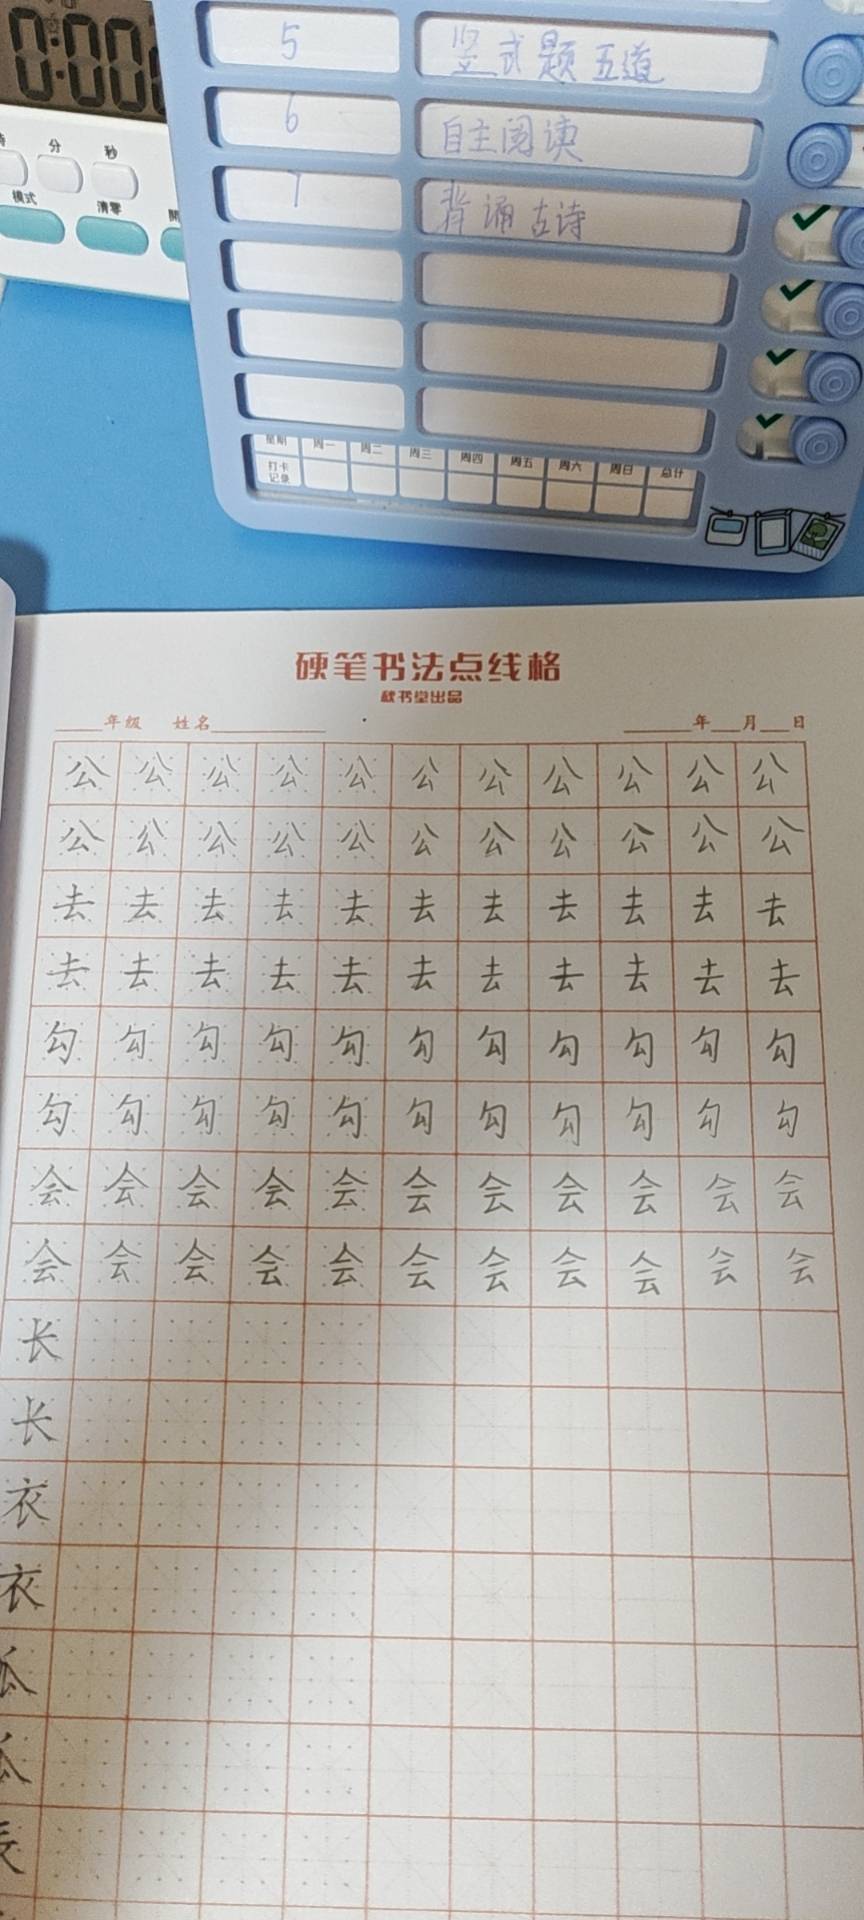 0:00
分 秒
模式 清零 開
5 竖式题五道
6 自主阅读
7 背诵古诗
星期 周一 周二 周三 周四 周五 周六 周日 总计
打卡记录
硬笔书法点线格
秋书堂出品
年级 姓名 年 月 日
公公公公公公公公公公公
公公公公公公公公公公公
去去去去去去去去去去去
去去去去去去去去去去去
勾勾勾勾勾勾勾勾勾勾勾
勾勾勾勾勾勾勾勾勾勾勾
会会会会会会会会会会会
会会会会会会会会会会会
长
长
衣
衣
瓜
瓜